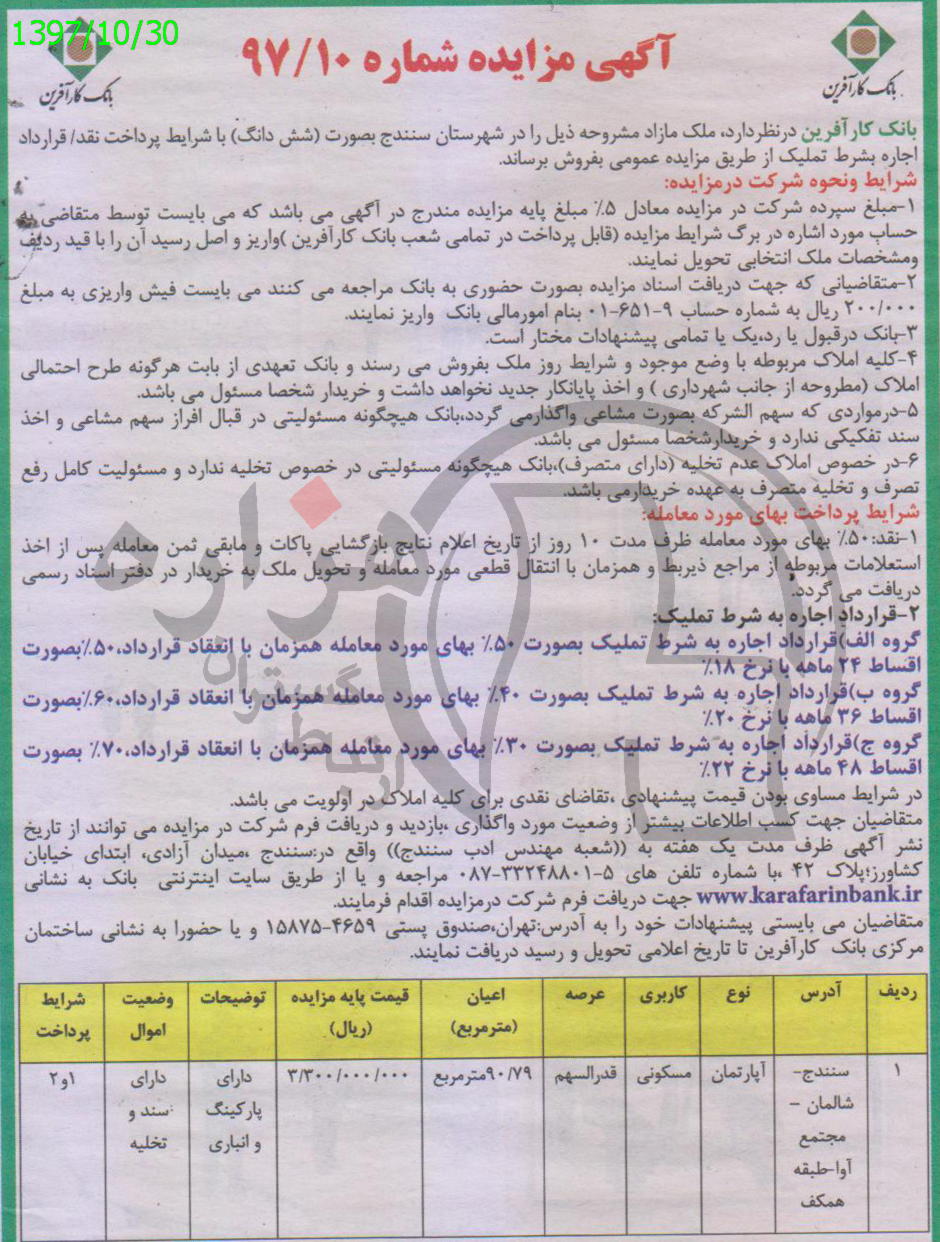 1397/10/30
آگهی مزایده شماره ۹۷/۱۰
بانک کارآفرین
بانک کارآفرین
بانک کارآفرین درنظردارد، ملک مازاد مشروحه ذیل را در شهرستان سنندج بصورت (شش دانگ) با شرایط پرداخت نقد/ قرارداد
اجاره بشرط تملیک از طریق مزایده عمومی بفروش برساند.
شرایط ونحوه شرکت درمزایده:
۱-مبلغ سپرده شرکت در مزایده معادل ۵٪ مبلغ پایه مزایده مندرج در آگهی می باشد که می بایست توسط متقاضی به
حساب مورد اشاره در برگ شرایط مزایده (قابل پرداخت در تمامی شعب بانک کارآفرین )واریز و اصل رسید آن را با قید ردیف
ومشخصات ملک انتخابی تحویل نمایند.
۲-متقاضیانی که جهت دریافت اسناد مزایده بصورت حضوری به بانک مراجعه می کنند می بایست فیش واریزی به مبلغ
۲۰۰/۰۰۰ ریال به شماره حساب ۹-۶۵۱-۰۱ بنام امورمالی بانک واریز نمایند.
۳-بانک درقبول یا رد،یک یا تمامی پیشنهادات مختار است.
۴-کلیه املاک مربوطه با وضع موجود و شرایط روز ملک بفروش می رسند و بانک تعهدی از بابت هرگونه طرح احتمالی
املاک (مطروحه از جانب شهرداری ) و اخذ پایانکار جدید نخواهد داشت و خریدار شخصا مسئول می باشد.
۵-درمواردی که سهم الشرکه بصورت مشاعی واگذارمی گردد،بانک هیچگونه مسئولیتی در قبال افراز سهم مشاعی و اخذ
سند تفکیکی ندارد و خریدارشخصا مسئول می باشد.
۶-در خصوص املاک عدم تخلیه (دارای متصرف)،بانک هیچگونه مسئولیتی در خصوص تخلیه ندارد و مسئولیت کامل رفع
تصرف و تخلیه متصرف به عهده خریدارمی باشد.
شرایط پرداخت بهای مورد معامله:
۱-نقد:۵۰٪ بهای مورد معامله ظرف مدت ۱۰ روز از تاریخ اعلام نتایج بازگشایی پاکات و مابقی ثمن معامله پس از اخذ
استعلامات مربوطه از مراجع ذیربط و همزمان با انتقال قطعی مورد معامله و تحویل ملک به خریدار در دفتر اسناد رسمی
دریافت می گردد.
۲-قرارداد اجاره به شرط تملیک:
گروه الف)قرارداد اجاره به شرط تملیک بصورت ۵۰٪ بهای مورد معامله همزمان با انعقاد قرارداد،۵۰٪بصورت
اقساط ۲۴ ماهه با نرخ ۱۸٪
گروه ب)قرارداد اجاره به شرط تملیک بصورت ۴۰٪ بهای مورد معامله همزمان با انعقاد قرارداد،۶۰٪بصورت
اقساط ۳۶ ماهه با نرخ ۲۰٪
گروه ج)قرارداد اجاره به شرط تملیک بصورت ۳۰٪ بهای مورد معامله همزمان با انعقاد قرارداد،۷۰٪ بصورت
اقساط ۴۸ ماهه با نرخ ۲۲٪
در شرایط مساوی بودن قیمت پیشنهادی ،تقاضای نقدی برای کلیه املاک در اولویت می باشد.
متقاضیان جهت کسب اطلاعات بیشتر از وضعیت مورد واگذاری ،بازدید و دریافت فرم شرکت در مزایده می توانند از تاریخ
نشر آگهی ظرف مدت یک هفته به ((شعبه مهندس ادب سنندج)) واقع در:سنندج ،میدان آزادی، ابتدای خیابان
کشاورز؛پلاک ۴۲ ،با شماره تلفن های ۵-۳۳۲۴۸۸۰۱-۰۸۷ مراجعه و یا از طریق سایت اینترنتی بانک به نشانی
www.karafarinbank.ir جهت دریافت فرم شرکت درمزایده اقدام فرمایند.
متقاضیان می بایستی پیشنهادات خود را به آدرس:تهران،صندوق پستی ۴۶۵۹-۱۵۸۷۵ و یا حضورا به نشانی ساختمان
مرکزی بانک کارآفرین تا تاریخ اعلامی تحویل و رسید دریافت نمایند.
ردیف آدرس نوع کاربری عرصه اعیان (مترمربع) قیمت پایه مزایده (ریال) توضیحات وضعیت اموال شرایط پرداخت
۱ سنندج- شالمان – مجتمع آوا-طبقه همکف آپارتمان مسکونی قدرالسهم ۹۰/۷۹مترمربع ۳/۳۰۰/۰۰۰/۰۰۰ دارای پارکینگ و انباری دارای سند و تخلیه ۱و۲
هزاره
گستران
ارتباط